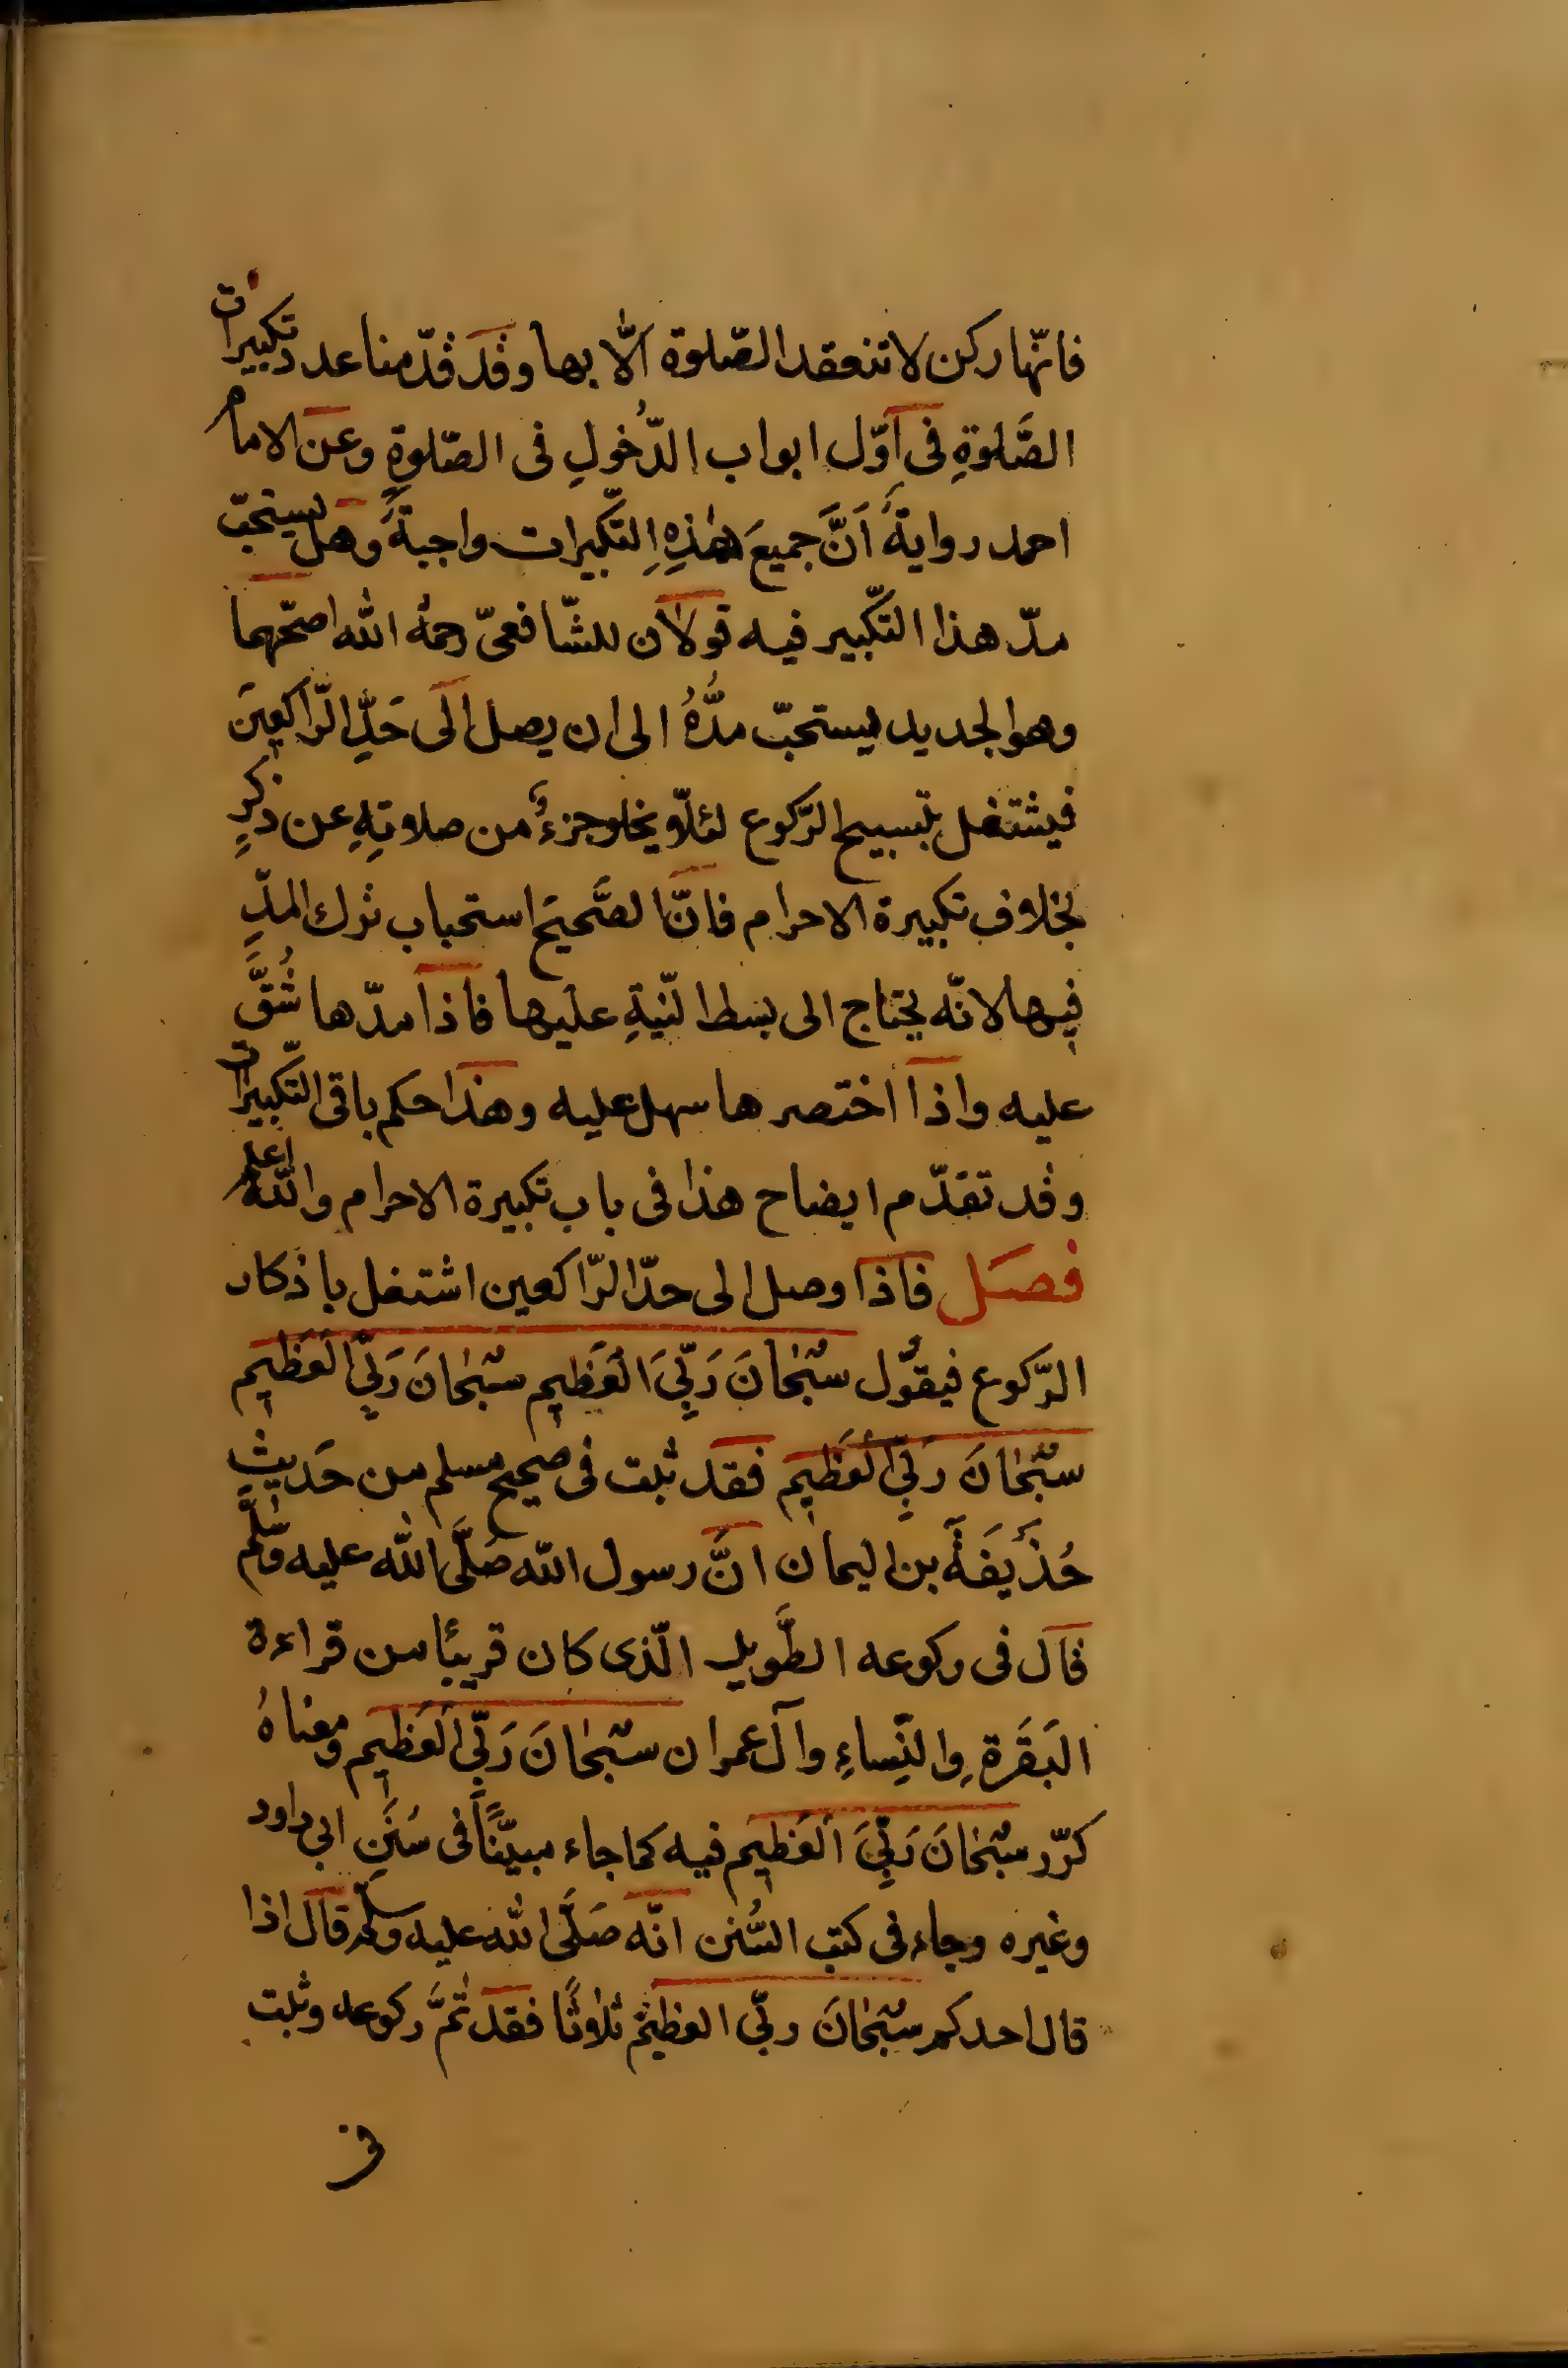 فانّها ركن لا تنعقد الصّلوة الّا بها وقد قدّمنا عدد تكبيرات
الصَّلوةِ فى اوّل ابواب الدُّخولِ فى الصّلوةِ وعن الامام
احمد روايةً اَنَّ جميعَ هٰذِهِ التّكبيرات واجبةً وهل يستحبّ
مدّ هذا التّكبير فيه قولان للشّافعىّ رحمهُ الله اصحّهما
وهو الجديد يستحبّ مدُّهُ الى ان يصل الى حَدِّ الرّاكعِينَ
فيشتغل بتسبيح الرّكوع لئلّا يخلو جزءٌ من صلاتِهِ عن ذكرٍ
بخلاف تكبيرة الاحرام فانَّ الصَّحيحَ استحباب ترك المدِّ
فيها لانّه يحتاج الى بسط النّيّةِ عليها فاذا مدّها شُقَّ
عليه واذا اختصرها سهل عليه وهذا حكم باقى التّكبيرات
وقد تقدّم ايضاح هذا فى باب تكبيرة الاحرام واللّهُ اعلم
فصل فاذا وصل الى حدّ الرّاكعين اشتغل باذكار
الرّكوع فيقُول سُبْحٰانَ رَبِّىَ الْعَظيمِ سُبْحٰانَ رَبِّىَ الْعَظيمِ
سُبْحٰانَ رَبِّىَ الْعَظيمِ فقد ثبت فى صحيح مسلم من حَديثِ
حُذَيفَةَ بن اليمان انَّ رسول الله صَلَّى الله عليه وسَلَّم
قال فى ركوعه الطَّويل الّذى كان قريبًا من قراءة
البَقَرَةِ والنِّساءِ وآل عمران سُبْحٰانَ رَبِّىَ الْعَظيمِ ومعناهُ
كرّر سُبْحٰانَ رَبِّىَ الْعَظيمِ فيه كما جاء مبيّنًا فى سُنَنِ ابى داود
وغيره وجاء فى كتب السُّنن انّه صَلَّى الله عليه وسلّم قال اذا
قال احدكم سُبْحٰانَ ربّى العظيم ثلاثًا فقد تمَّ ركوعه وثبت
فى